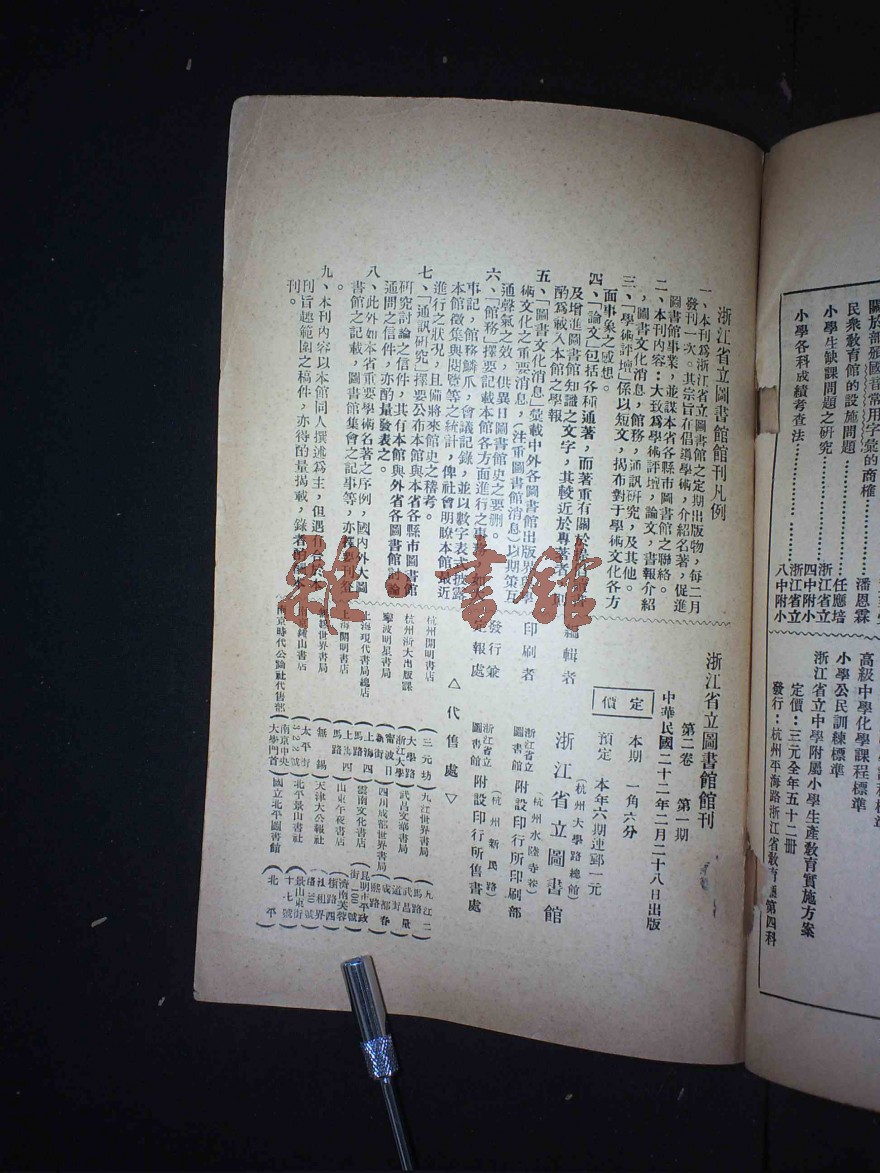 浙江省立圖書館館刊凡例
一、本刊爲浙江省立圖書館之定期出版物，每二月
發刊一次。其宗旨在倡導學術，介紹名著，促進
圖書館事業，並謀本省各縣市圖書館之聯絡。
二、本刊內容：大致爲學術評壇，論文，書報介紹
，圖書文化消息，館務，通訊研究，及其他。
三、「學術評壇」係以短文，揭布對于學術文化各方
面事象之感想。
四、「論文」包括各種通著，而著重有關於
及增進圖書館知識之文字，其較近於專著者
酌爲載入本館之學報
五、「圖書文化消息」彙載中外各圖書館出版界與
術文化之重要消息，（注重圖書館消息）以期策互
通聲氣之效，供異日圖書館史之要刪。
六、「館務」擇要記載本館各方面進行之
事記，館務鱗爪，會議記錄，並以數字表式披露
本館徵集與閱覽等之統計，俾社會明瞭本館最近
進行之狀況，且備將來館史之稽考。
七、「通訊研究」擇要公布本館與本省各縣市圖書館
研究討論之信件，其有本館與外省各圖書館討論
通問之信件，亦酌量發表之。
八、此外如本省重要學術名著之序例，國內外大圖
書館之記載，圖書館集會之記事等，亦
。
九、本刊內容以本館同人撰述爲主，但遇有
刊旨趣範圍之稿件，亦待酌量揭載，錄者
刊。
浙江省立圖書館館刊
第二卷　第一期
中華民國二十二年二月二十八日出版
定價
本期　一角六分
預定　本年六期連郵一元
編輯者
浙江省立圖書館
（杭州大學路總館）
印刷者
浙江省立圖書館 附設印行所印刷部
（杭州水陸寺巷）
發行兼
定報處
浙江省立圖書館 附設印行所售書處
（杭州新民路）
△代售處▽
杭州開明書店
（三元坊）
九江世界書局
（九江二馬路）
杭州浙大出版課
（大學路浙江大學）
武昌文華書局
寧波明星書局
（寧波日新街）
四川成都世界書局
上海現代書局總店
（上海四馬路）
雲南文化書店
上海開明書店
（上海四馬路）
山東午夜書店
無錫世界書局
（無錫）
天津大公報社
鍾山書店
北平景山書社
（景山東街十七號）
南京時代公論社代售部
（南京中央大學門首）
國立北平圖書館
（北平）
雜·書館
關於部頒國音常用字彙的商榷
潘恩霖
民衆教育館的設施問題
任應培
小學生缺課問題之研究
浙江省立四中附小
小學各科成績考查法
浙江省立八中附小
高級中學化學課程標準
小學公民訓練標準
浙江省立中學附屬小學生產教育實施方案
定價：三元全年五十二冊
發行：杭州平海路浙江省教育廳第四科